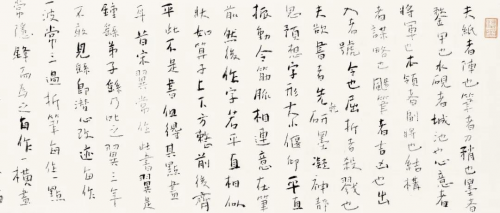 夫紙者陣也筆者矟也墨者
鍪甲也水硯者城池也心意者
將軍也本領者副將也結構
者謀略也颺筆者吉凶也出
入者號令也屈折者殺戮也
夫欲書者先乾研墨凝神靜
思預想字形大小偃仰平直
振動令筋脈相連意在筆
前然後作字若平直相似
狀如算子上下方整前後齊
平此不是書但得其點畫
耳昔宋翼常作此書翼是
鍾繇弟子繇乃叱之翼三年
不敢見繇即潛心改迹每作
一波常三過折筆每作一點
常隱鋒而為之每作一橫畫